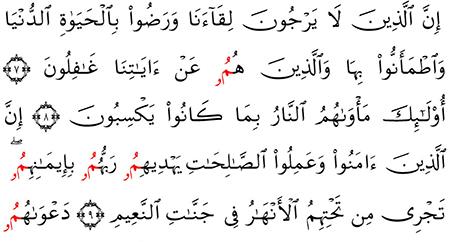 إِنَّ ٱلَّذِينَ لَا يَرْجُونَ لِقَآءَنَا وَرَضُوا۟ بِٱلْحَيَوٰةِ ٱلدُّنْيَا
وَٱطْمَأَنُّوا۟ بِهَا وَٱلَّذِينَ هُمُۥ عَنْ ءَايَـٰتِنَا غَـٰفِلُونَ ﴿٧﴾
أُو۟لَـٰٓئِكَ مَأْوَىٰهُمُ ٱلنَّارُ بِمَا كَانُوا۟ يَكْسِبُونَ ﴿٨﴾ إِنَّ
ٱلَّذِينَ ءَامَنُوا۟ وَعَمِلُوا۟ ٱلصَّـٰلِحَـٰتِ يَهْدِيهِمُۥ رَبُّهُمُۥ بِإِيمَـٰنِهِمُۥ ۖ
تَجْرِى مِن تَحْتِهِمُ ٱلْأَنْهَـٰرُ فِى جَنَّـٰتِ ٱلنَّعِيمِ ﴿٩﴾ دَعْوَىٰهُمُۥ